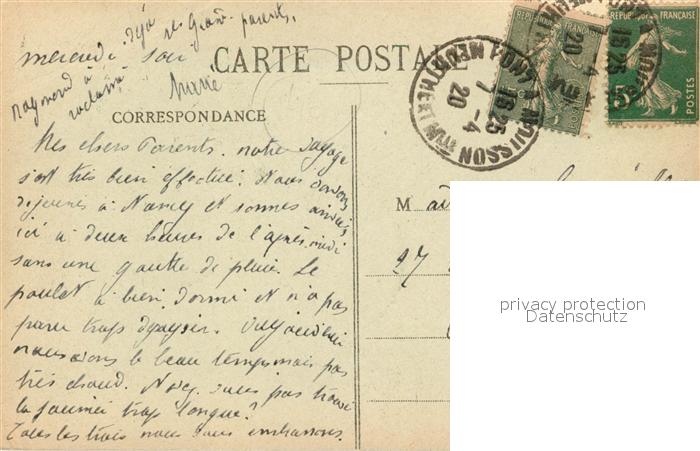 déjà ses Grands parents.
Mercredi soir
Raymond a réclamé
Marie
CARTE POSTALE
CORRESPONDANCE
Mes chers Parents. notre voyage
s'est très bien effectué. Nous avons
déjeuné à Nancy et sommes arrivés
ici à deux heures de l'après-midi
sans une goutte de pluie. Le
poulet a bien dormi et n'a pas
paru trop dépaysé. Aujourd'hui
nous avons le beau temps mais pas
très chaud. N'avez-vous pas trouvé
la journée trop longue?
Tous les trois nous vous embrassons.
M
27
PONT A MOUSSON
MEURTHE
16 25
7 -4
20
REPUBLIQUE FRANÇAISE
POSTES
5c
privacy protection
Datenschutz